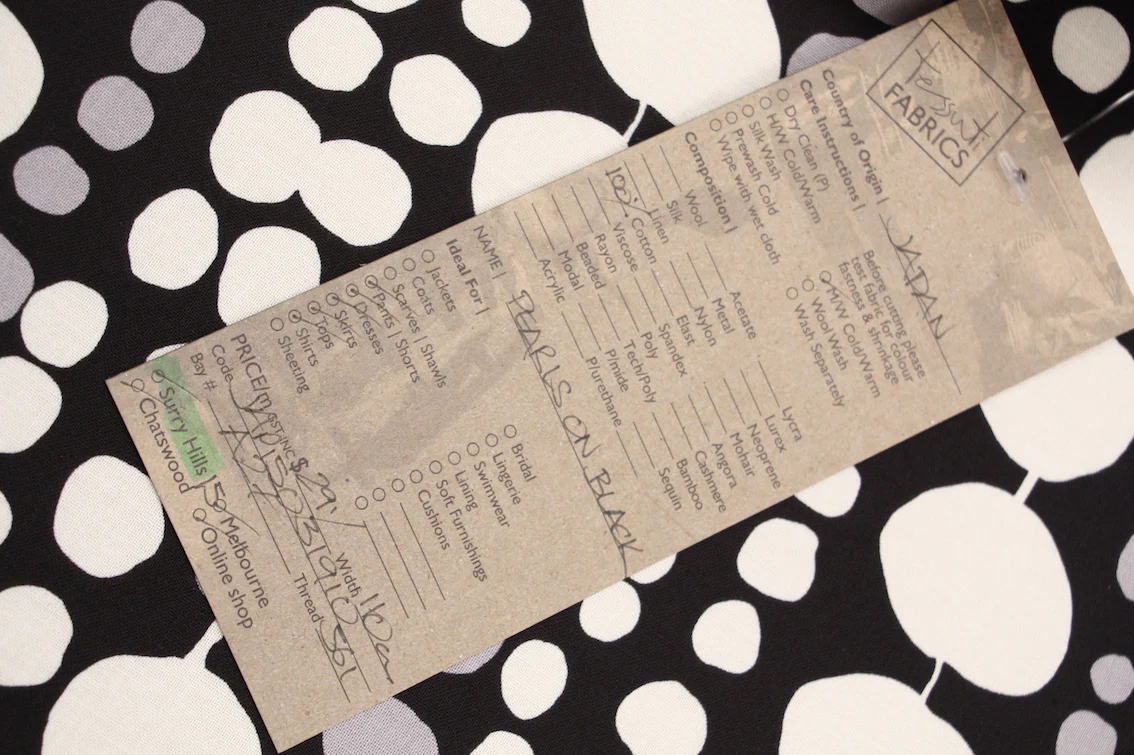 Tessuti
FABRICS
Country of Origin | JAPAN
Care Instructions |
Dry Clean (P)
H/W Cold/Warm
Silk Wash
Prewash Cold
Wipe with wet cloth
Before cutting please
test fabric for colour
fastness & shrinkage
M/W Cold/Warm
Wool Wash
Wash Separately
Composition |
Wool
Silk
Linen
100% Cotton
Viscose
Rayon
Beaded
Modal
Acrylic
Acetate
Metal
Nylon
Elast
Spandex
Poly
Tech/Poly
P/mide
P/urethane
Lycra
Lurex
Neoprene
Mohair
Angora
Cashmere
Bamboo
Sequin
NAME | PEARLS ON BLACK
Ideal For |
Jackets
Coats
Scarves | Shawls
Pants | Shorts
Dresses
Skirts
Tops
Shirts
Sheeting
Bridal
Lingerie
Swimwear
Lining
Soft Furnishings
Cushions
PRICE/m GST INC $29/ Width 110cm
Code
Bay # Thread 361
Surry Hills Melbourne
Chatswood Online shop